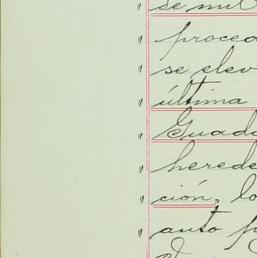 se mil
proced
se elev
última
Guada
herede
ción, lo
auto p